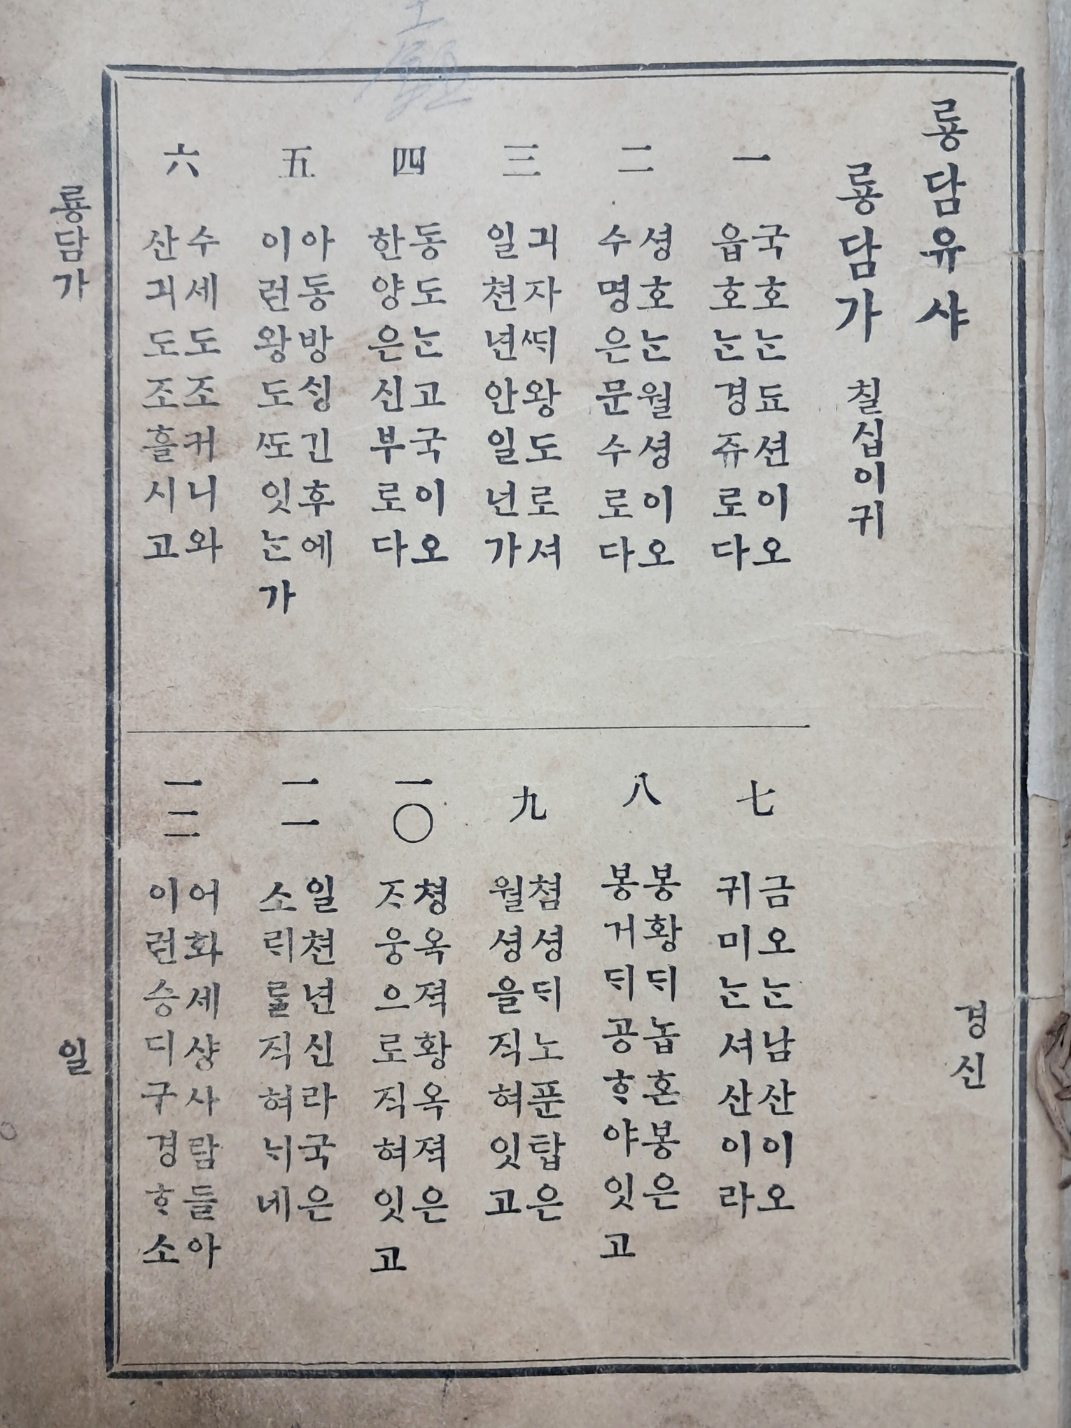 룡담유샤
룡담가 칠십이귀
경신
一
국호ᄂᆞᆫ됴션이오
읍호ᄂᆞᆫ경쥬로다
二
셩호ᄂᆞᆫ월셩이오
수명은문수로다
三
긔자ᄯᆡ왕도로셔
일쳔년안일넌가
四
동도ᄂᆞᆫ고국이오
한양은신부로다
五
아동방ᄉᆡᆼ긴후에
이런왕도ᄯᅩ잇ᄂᆞᆫ가
六
수세도조커니와
산긔도조흘시고
七
금오ᄂᆞᆫ남산이오
귀미ᄂᆞᆫ셔산이라
八
봉황ᄃᆡ놉혼봉은
봉거ᄃᆡ공ᄒᆞ야잇고
九
쳠셩ᄃᆡ노푼탑은
월셩을직혀잇고
一〇
쳥옥젹황옥젹은
ᄌᆞ웅으로직혀잇고
一一
일쳔년신라국은
소ᄅᆡ를직혀ᄂᆡ네
一二
어화세샹사람들아
이런승디구경ᄒᆞ소
룡담가
일